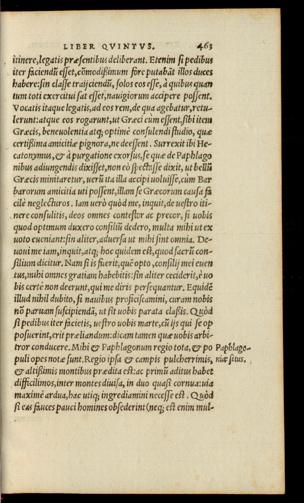 LIBER QVINTVS. 463
itinere, legatis præsentibus deliberant. Etenim si pedibus
iter faciendū esset, cōmodissimum fore putabāt illos duces
habere: sin classe traijciendū, solos eos esse, à quibus quan
tum toti exercitui sat esset, nauigiorum accipere possent.
Vocatis itaque legatis, ad eos rem, de qua agebatur, retu-
lerunt: atque eos rogarunt, ut Græci cùm essent, sibi item
Græcis, beneuolentia atq; optimè consulendi studio, quæ
certissima amicitiæ pignora, ne deessent. Surrexit ibi He-
catonymus, & à purgatione exorsus, se quæ de Paphlago
nibus adiungendis dixisset, non eò spectasse dixit, ut bellū
Græcis minitaretur, uerùm ita illa accipi uoluisse, cùm Bar
barorum amicitia uti possent, illam se Græcorum causa fa
cilè neglecturos. Iam uerò quòd me, inquit, de uestro iti-
nere consulitis, deos omnes contestor ac precor, si uobis
quod optimum duxero consiliū dedero, multa mihi ut ex
uoto eueniant: sin aliter, aduersa ut mihi sint omnia. De-
uoui me iam, inquit, atq; hoc quidem est, quod sacrū con-
silium dicitur. Nam si is fuerit, quē opto, consilij mei euen
tus, mihi omnes gratiam habebitis: sin aliter ceciderit, è uo
bis certè non deerunt, qui me diris persequantur. Equidē
illud nihil dubito, si nauibus proficiscamini, curam nobis
nō paruam suscipiendā, ut sit uobis parata classis. Quòd
si pedibus iter facietis, uestro uobis marte, cū ijs qui se op
posuerint, erit præliandum: dicam tamen quæ uobis arbi-
tror conducere. Mihi & Paphlagonum regio tota, & po
puli opes notæ sunt. Regio ipsa & campis pulcherrimis,
& altissimis montibus prædita est: ac primū aditus habet
difficilimos, inter montes diuisa, in duo quasi cornua: uia
maximè ardua, hac utiq; ingrediamini necesse est. Quòd
si eas fauces pauci homines obsederint (neq; est enim mul-
Paphlago-
niæ situs.